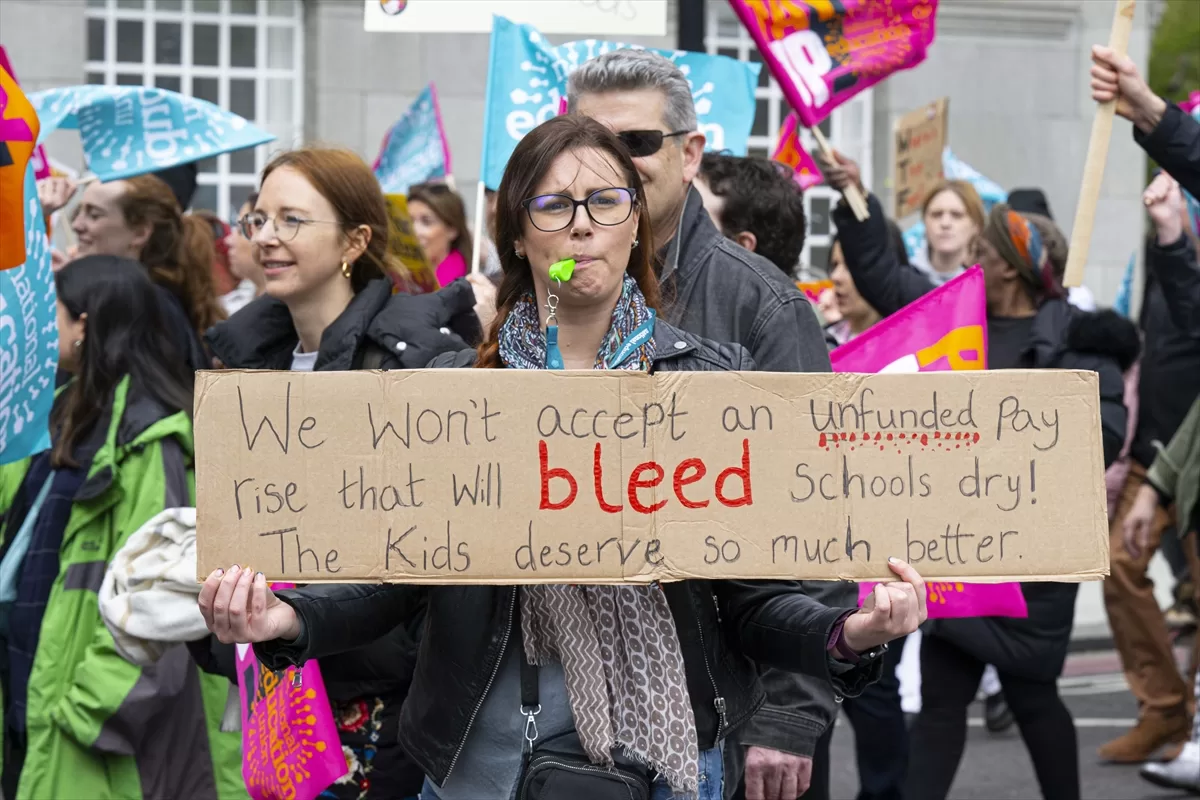 We Won't accept an unfunded Pay
rise that will bleed Schools dry!
The Kids deserve so much better.
national
education
union